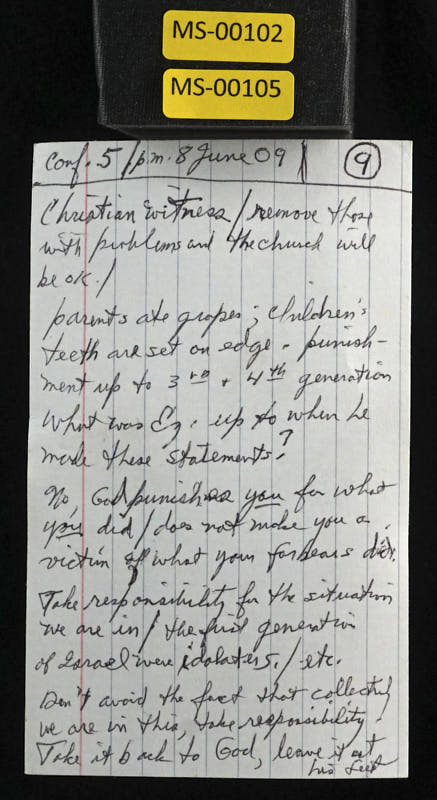 MS-00102
MS-00105
Conf. 5 / p.m. 8 June 09 | 9
Christian witness / remove those
with problems and the church will
be ok. /
parents ate grapes; children's
teeth are set on edge - punish-
ment up to 3rd + 4th generation
What was Ez. up to when he
made these statements?
No, God punishes you for what
you did / does not make you a
victim of what your forbears did.
Take responsibility for the situation
we are in / the first generation
of Israel were idolaters. / etc.
Don't avoid the fact that collectively
we are in this, take responsibility.
Take it back to God, leave it at
his feet